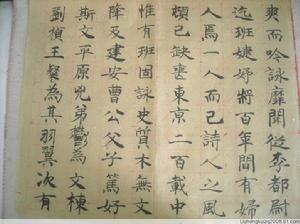 爽而吟詠靡聞從李都尉
迄班婕妤將百年間有婦
人焉一人而已詩人之風
頓已缺喪東京二百載中
惟有班固詠史質木無文
降及建安曹公父子篤好
斯文平原兄弟鬱為文棟
劉楨王粲為其羽翼次有